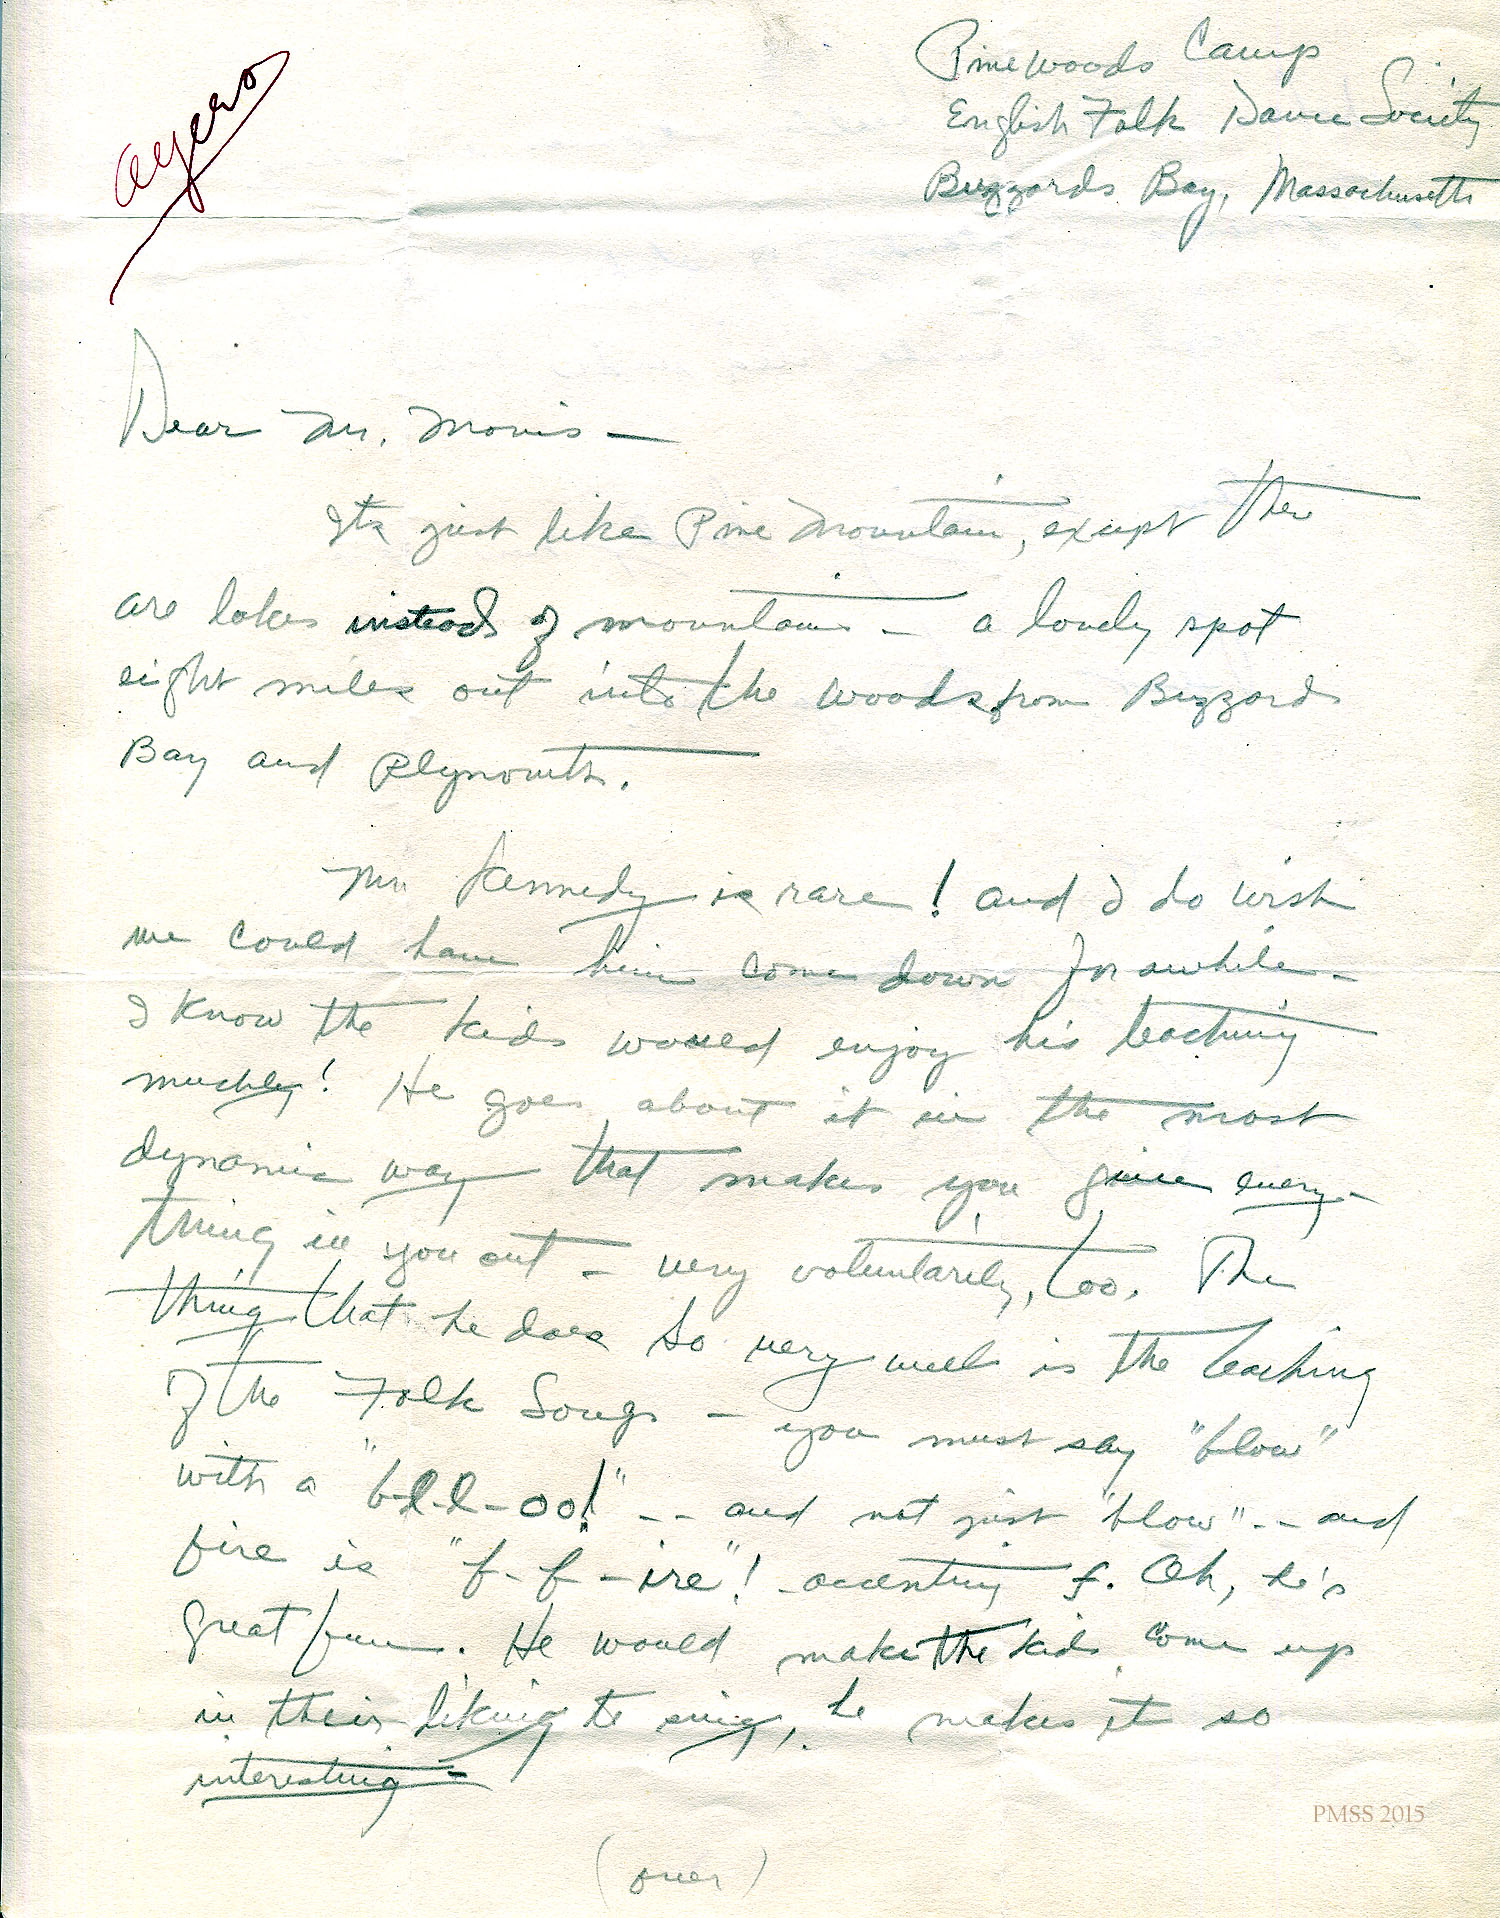 Ayers
Pinewoods Camp
English Folk Dance Society
Buzzards Bay, Massachusetts
Dear Mr. Morris —
Its just like Pine Mountain, except there
are lakes instead of mountains — a lovely spot
eight miles out into the woods from Buzzards
Bay and Plymouth.
Mr. Kennedy is rare! and I do wish
we could have him come down for awhile —
I know the kids would enjoy his teaching
muchly! He goes about it in the most
dynamic way that makes you give every-
thing in you out — very voluntarily, too. The
thing that he does so very well is the teaching
of the Folk Songs — you must say "blow"
with a "b-l-l-oo!" -- and not just "blow" -- and
fire is "f-f-ire"! accenting f. Oh, he's
great fun. He would make the kids come up
in their liking to sing, he makes it so
interesting —
(over)
PMSS 2015